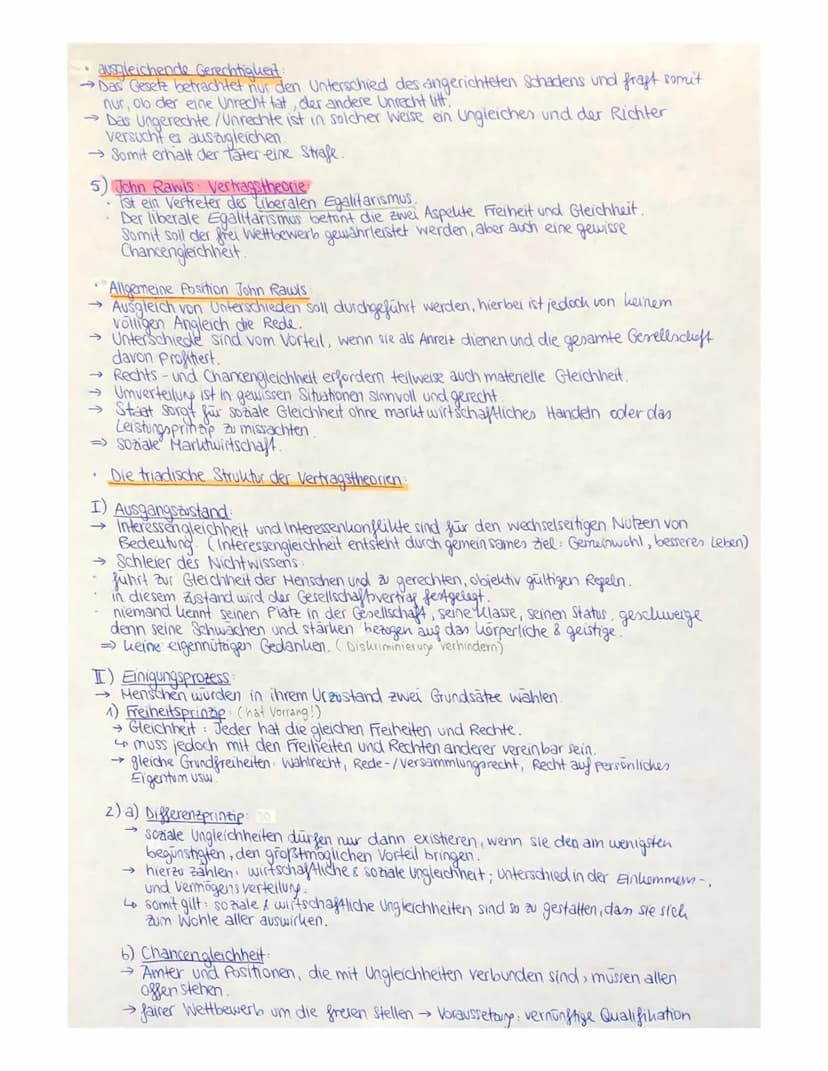 • ausgleichende Gerechtigkeit:
→ Das Gesetz betrachtet nur den Unterschied des angerichteten Schadens und fragt somit
nur, ob der eine Unrecht tat, der andere Unrecht litt.
→ Das Ungerechte/Unrechte ist in solcher Weise ein Ungleiches und der Richter
versucht es auszugleichen.
→ Somit erhält der Täter eine Strafe.
5) John Rawls: Vertragstheorie
• Ist ein Vertreter des liberalen Egalitarismus.
• Der liberale Egalitarismus betont die zwei Aspekte Freiheit und Gleichheit.
Somit soll der frei Wettbewerb gewährleistet werden, aber auch eine gewisse
Chancengleichheit.
• Allgemeine Position John Rawls:
→ Ausgleich von Unterschieden soll durchgeführt werden, hierbei ist jedoch von keinem
völligen Angleich die Rede.
→ Unterschiede sind vom Vorteil, wenn sie als Anreiz dienen und die gesamte Gesellschaft
davon profitiert.
→ Rechts- und Chancengleichheit erfordern teilweise auch materielle Gleichheit.
→ Umverteilung ist in gewissen Situationen sinnvoll und gerecht.
→ Staat sorgt für soziale Gleichheit ohne marktwirtschaftliches Handeln oder das
Leistungsprinzip zu missachten.
⇒ soziale Marktwirtschaft.
• Die triadische Struktur der Vertragstheorien:
I) Ausgangszustand:
→ Interessengleichheit und Interessenkonflikte sind für den wechselseitigen Nutzen von
Bedeutung. (Interessengleichheit entsteht durch gemeinsames Ziel: Gemeinwohl, besseres Leben)
→ Schleier des Nichtwissens:
• führt zur Gleichheit der Menschen und zu gerechten, objektiv gültigen Regeln.
• in diesem Zustand wird der Gesellschaftsvertrag festgelegt.
• niemand kennt seinen Platz in der Gesellschaft, seine Klasse, seinen Status, geschweige
denn seine Schwächen und stärken bezogen auf das körperliche & geistige.
⇒ keine eigennützigen Gedanken. (Diskriminierung verhindern)
II) Einigungsprozess:
→ Menschen würden in ihrem Urzustand zwei Grundsätze wählen.
1) Freiheitsprinzip: (hat Vorrang!)
→ Gleichheit: Jeder hat die gleichen Freiheiten und Rechte.
↳ muss jedoch mit den Freiheiten und Rechten anderer vereinbar sein.
→ gleiche Grundfreiheiten: Wahlrecht, Rede-/Versammlungsrecht, Recht auf persönliches
Eigentum usw.
2) a) Differenzprinzip:
→ soziale Ungleichheiten dürfen nur dann existieren, wenn sie den am wenigsten
begünstigten, den größtmöglichen Vorteil bringen.
→ hierzu zählen: wirtschaftliche & soziale Ungleichheit; Unterschied in der Einkommens-,
und Vermögensverteilung.
↳ somit gilt: soziale & wirtschaftliche Ungleichheiten sind so zu gestalten, dass sie sich
zum Wohle aller auswirken.
b) Chancengleichheit:
→ Ämter und Positionen, die mit Ungleichheiten verbunden sind, müssen allen
offen stehen.
→ fairer Wettbewerb um die freien Stellen → Voraussetzung: vernünftige Qualifikation